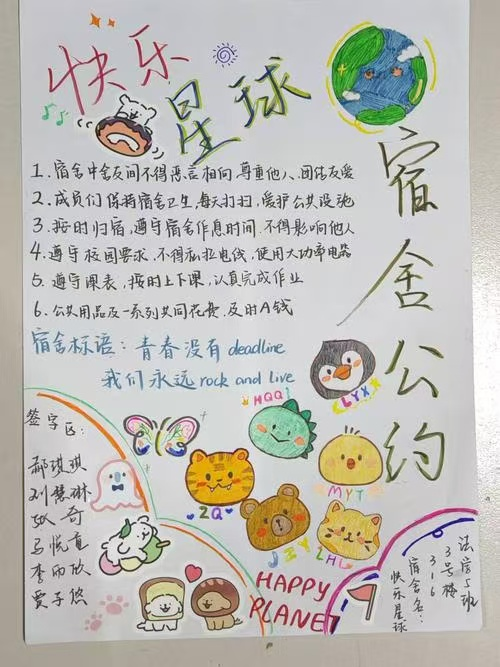 快乐
星球
宿舍公约
1. 宿舍中舍友间不得恶言相向,尊重他人、团结友爱
2. 成员们保持宿舍卫生,每天打扫,爱护公共设施
3. 按时归宿,遵守宿舍作息时间,不得影响他人
4. 遵守校园要求,不得私拉电线,使用大功率电器
5. 遵守课表,按时上下课,认真完成作业
6. 公共用品及一系列共同花费,及时A钱
宿舍标语:青春没有deadline
我们永远rock and live
LYX
HQQ
MYT
ZQ
JZY
LHL
签字区:
郝琪琪
刘慧琳
马悦
李雨欣
贾子悠
HAPPY
PLANET
5班
3号楼
316
宿舍名:
快乐星球